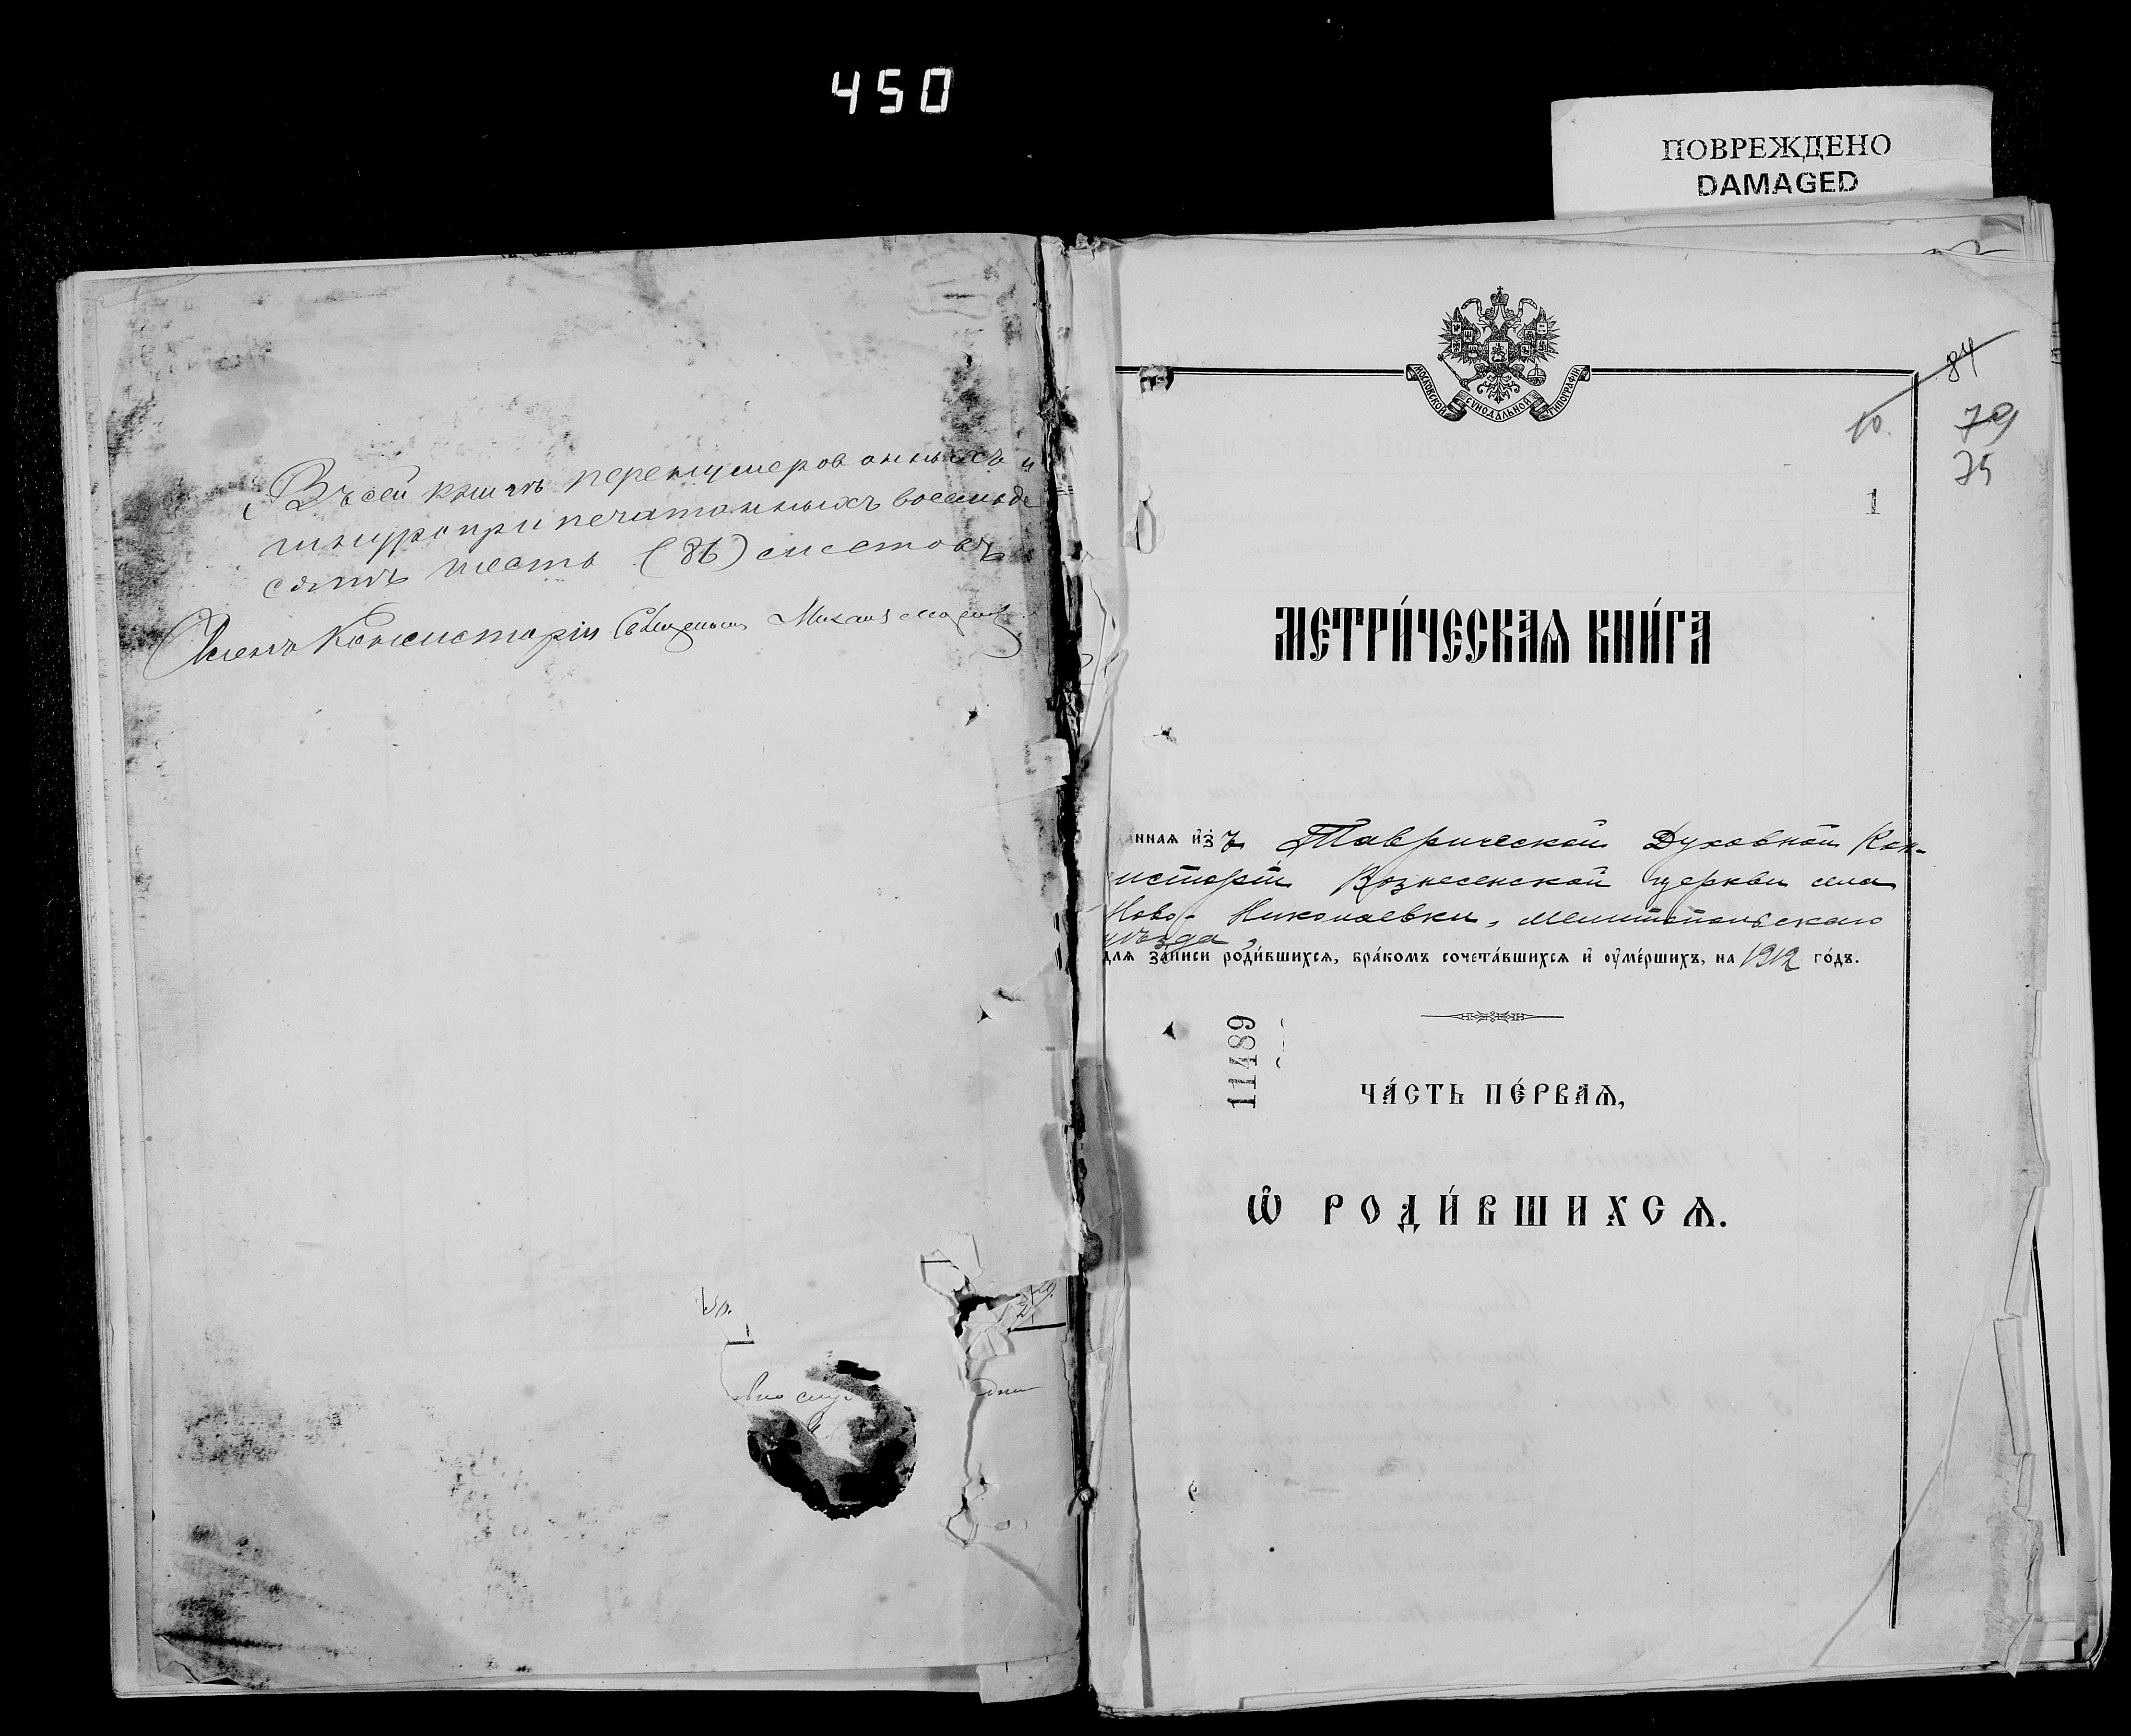 450
ПОВРЕЖДЕНО
DAMAGED
Въ сей книгѣ перенумерованныхъ и
шнуропри печатанныхъ восемьде
сятъ шесть (86) листовъ
Членъ Консисторіи Священникъ Михаилъ
МОСКОВСКОЙ СУНОДАЛЬНОЙ ТИПОГРАФІИ
84
10.
79
75
1
МЕТРИ́ЧЕСКАѦ КНИ́ГА
анная и҆зъ Таврической Духовной Кон-
систоріи Вознесенской церкви села
Ново-Николаевки, Мелитопольскаго
уѣзда,
для за́писи роди́вшихсѧ, бра́комъ сочета́вшихсѧ и҆ оу҆ме́ршихъ, на 1912 го́дъ.
11489
ЧА́СТЬ ПЕ́РВАѦ,
Ѡ҆ РОДИ́ВШИХСѦ.